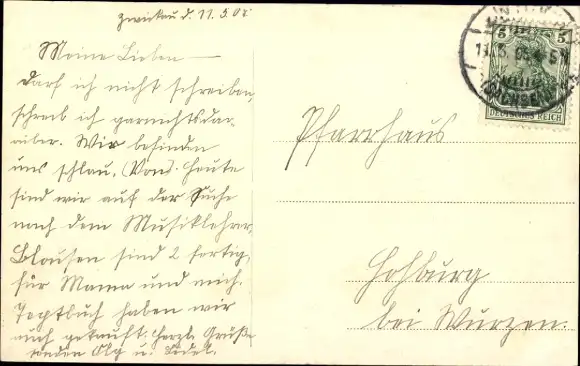 Zwickau d. 11.5.07
Meine Lieben
Darf ich nicht schreiben,
schreib ich garnichtsdar-
über. Wir befinden
uns schlau, (Von). Heute
sind wir auf der Suche
nach dem Musiklehrer,
Blousen sind 2 fertig,
für Mama und mich.
Textbuch haben wir
auch gekauft. Herzl. Grüße
senden Olg u.
5 5
DEUTSCHES REICH
Pfarrhaus
Hohburg
bei Wurzen.